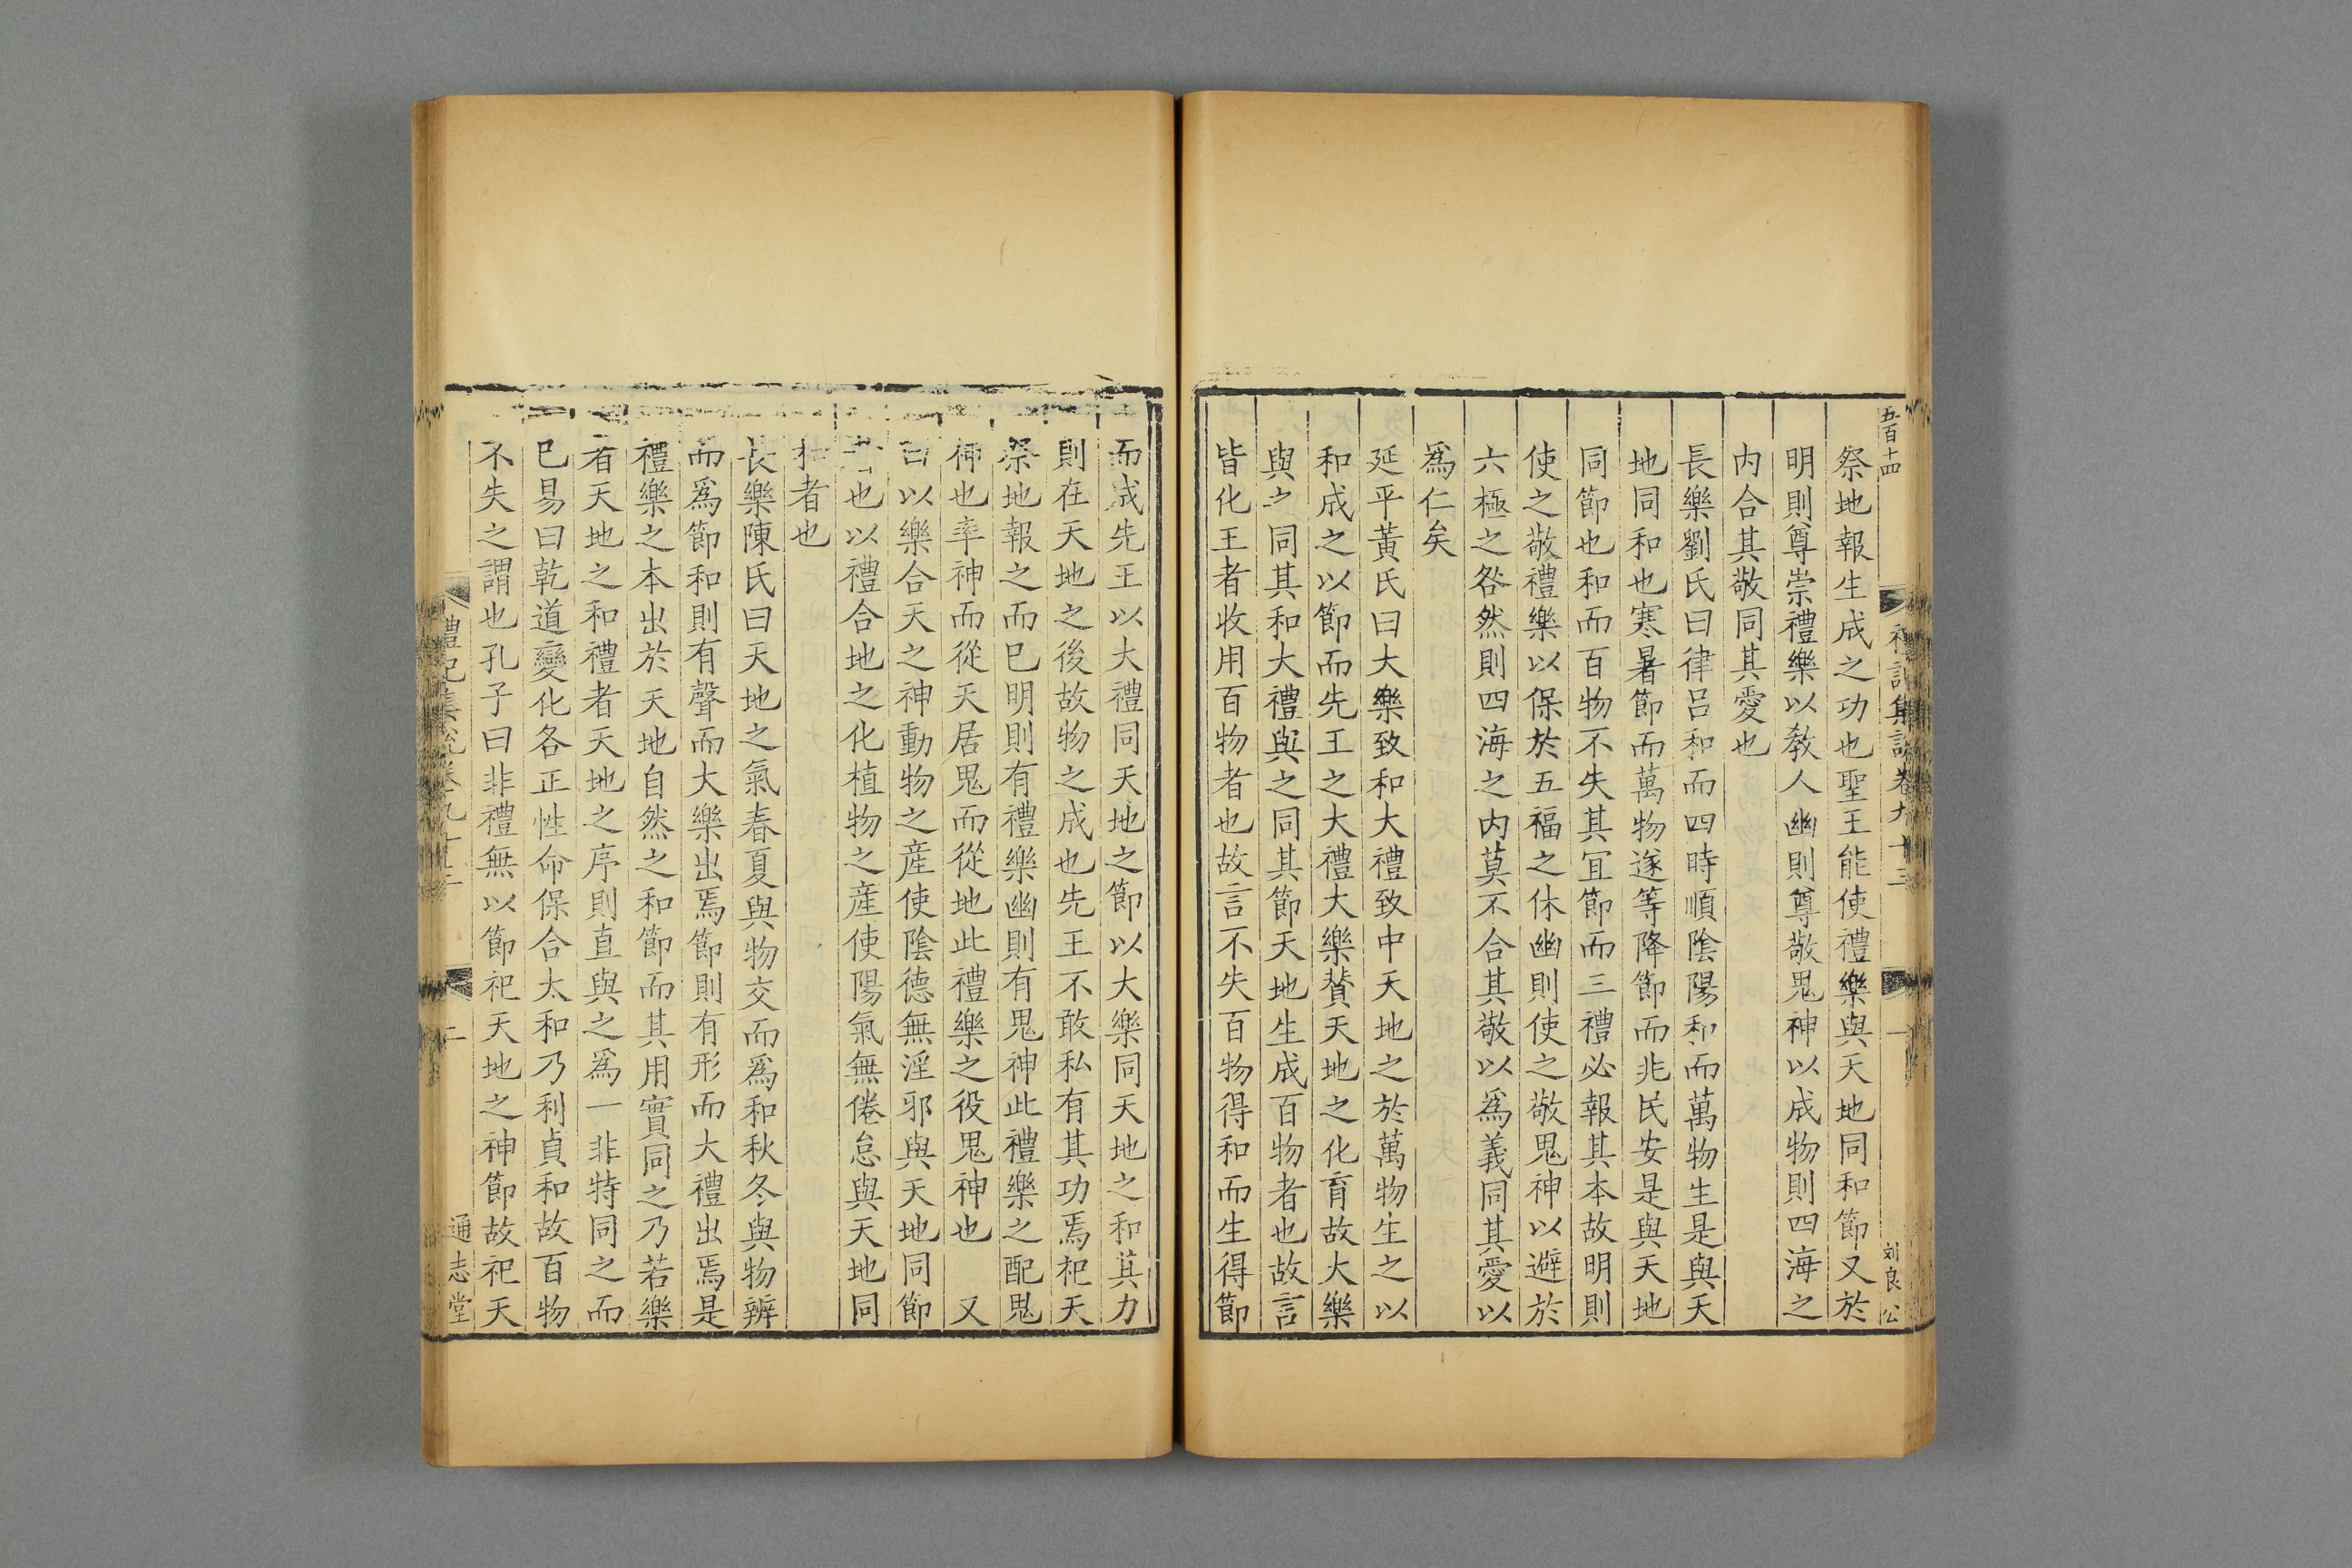 五百十四
禮記集說卷九十三
一
刘良公
祭地報生成之功也聖王能使禮樂與天地同和節又於
明則尊崇禮樂以敎人幽則尊敬鬼神以成物則四海之
内合其敬同其愛也
長樂劉氏曰律吕和而四時順陰陽和而萬物生是與天
地同和也寒暑節而萬物遂等降節而兆民安是與天地
同節也和而百物不失其宜節而三禮必報其本故明則
使之敬禮樂以保於五福之休幽則使之敬鬼神以避於
六極之咎然則四海之内莫不合其敬以爲義同其愛以
爲仁矣
延平黃氏曰大樂致和大禮致中天地之於萬物生之以
和成之以節而先王之大禮大樂賛天地之化育故大樂
與之同其和大禮與之同其節天地生成百物者也故言
皆化王者收用百物者也故言不失百物得和而生得節
而成先王以大禮同天地之節以大樂同天地之和其力
則在天地之後故物之成也先王不敢私有其功焉祀天
祭地報之而已明則有禮樂幽則有鬼神此禮樂之配鬼
神也率神而從天居鬼而從地此禮樂之役鬼神也 又
曰以樂合天之神動物之産使陰德無淫邪與天地同節
者也以禮合地之化植物之産使陽氣無倦怠與天地同
和者也
長樂陳氏曰天地之氣春夏與物交而爲和秋冬與物辨
而爲節和則有聲而大樂出焉節則有形而大禮出焉是
禮樂之本出於天地自然之和節而其用實同之乃若樂
者天地之和禮者天地之序則直與之爲一非特同之而
已易曰乾道變化各正性命保合太和乃利貞和故百物
不失之謂也孔子曰非禮無以節祀天地之神節故祀天
禮記集說卷九十三
二
通志堂